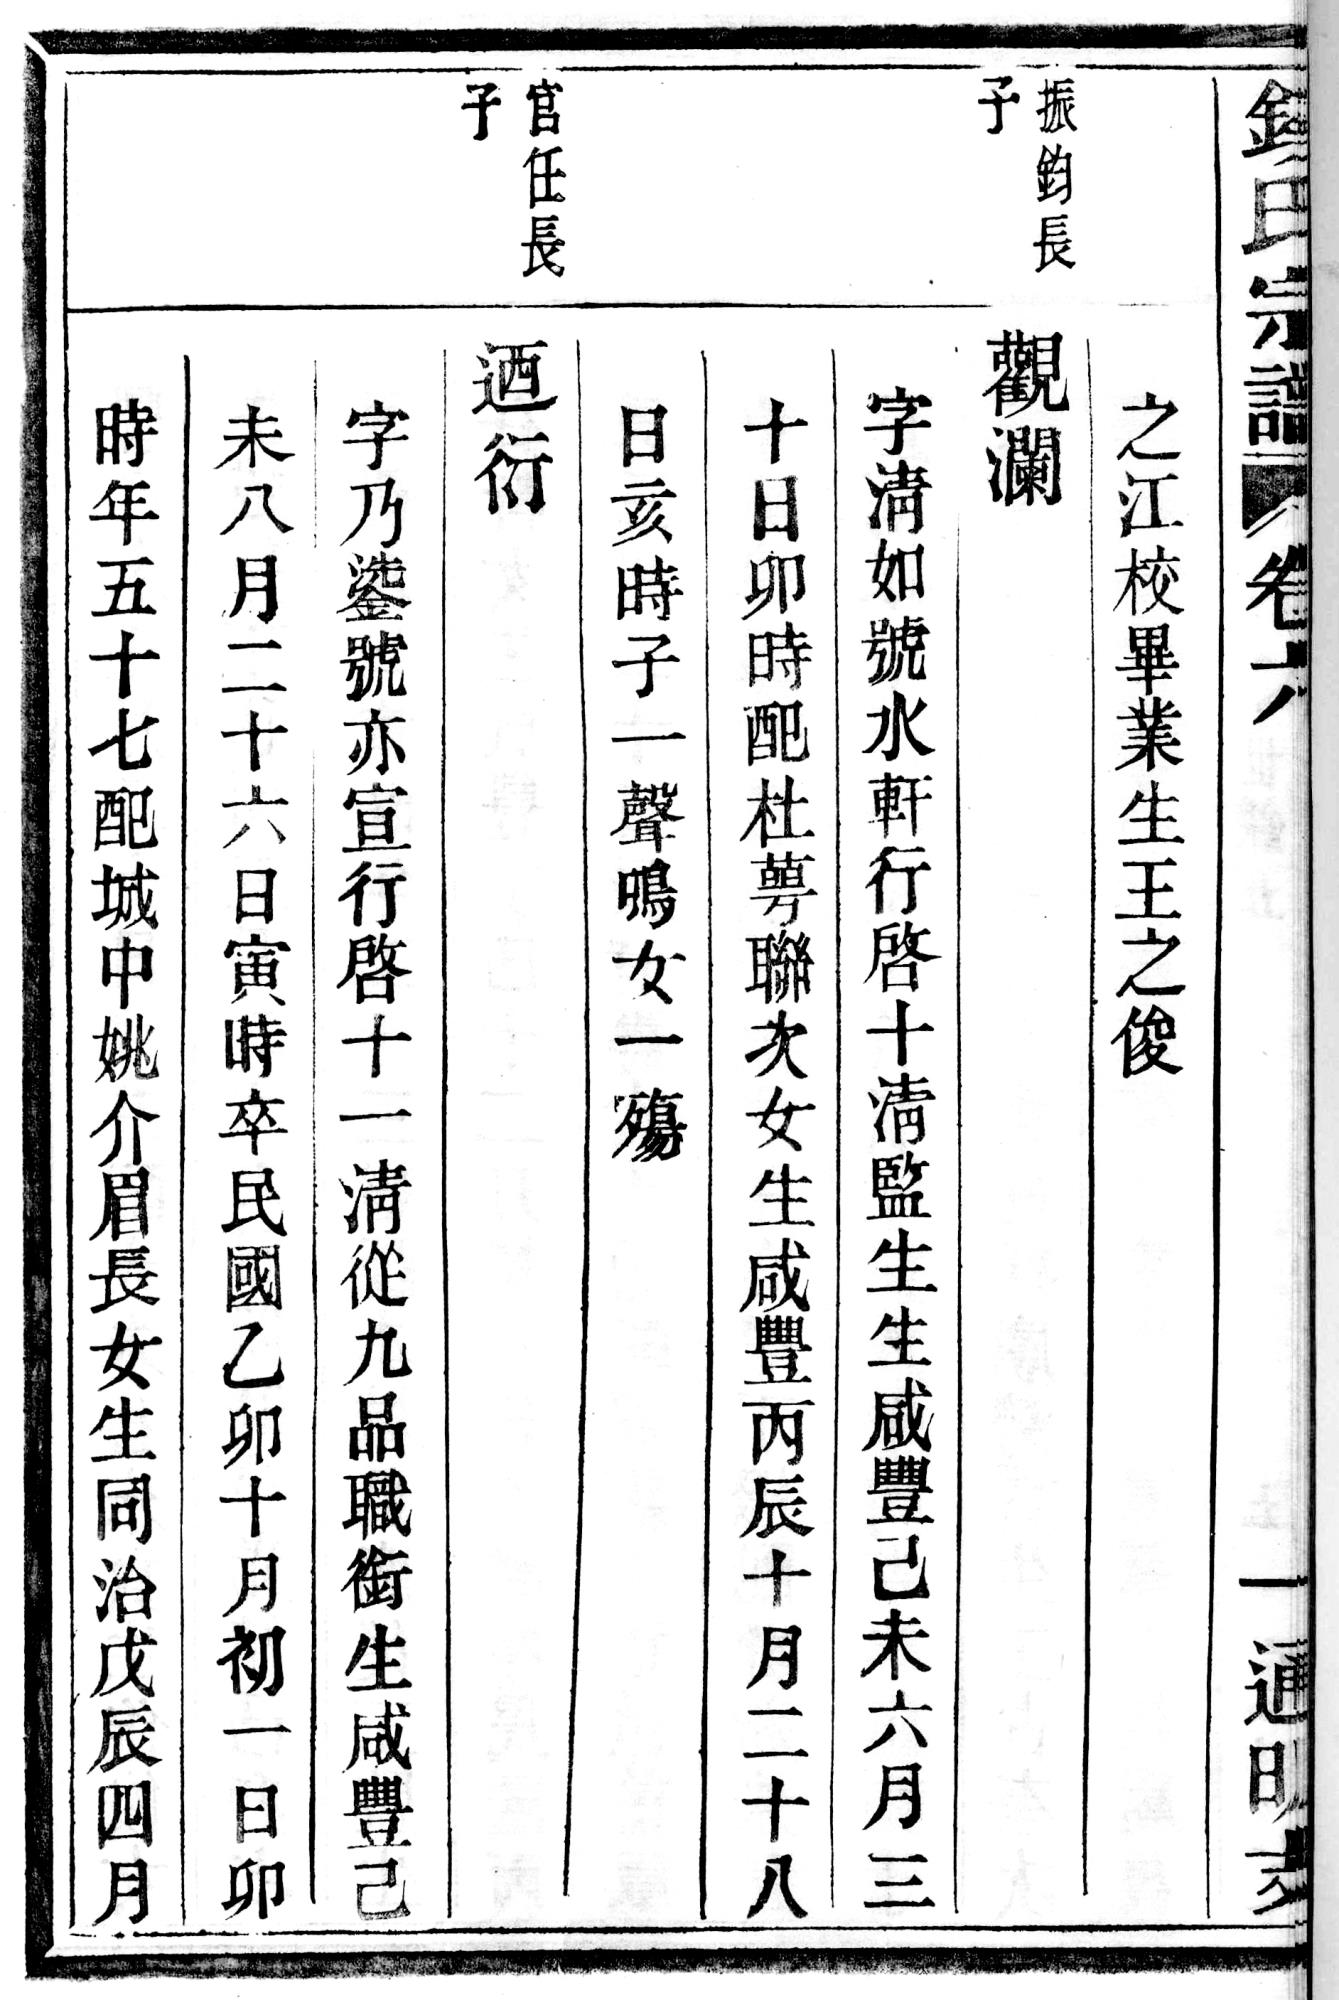 錢氏宗譜 卷六 一 通明支
之江校畢業生王之俊
振鈞長
子
觀瀾
字淸如號水軒行啓十淸監生生咸豐己未六月三
十日卯時配杜萼聯次女生咸豐丙辰十月二十八
日亥時子一聲鳴女一殤
官任長
子
迺衍
字乃鋆號亦宣行啓十一淸從九品職銜生咸豐己
未八月二十六日寅時卒民國乙卯十月初一日卯
時年五十七配城中姚介眉長女生同治戊辰四月